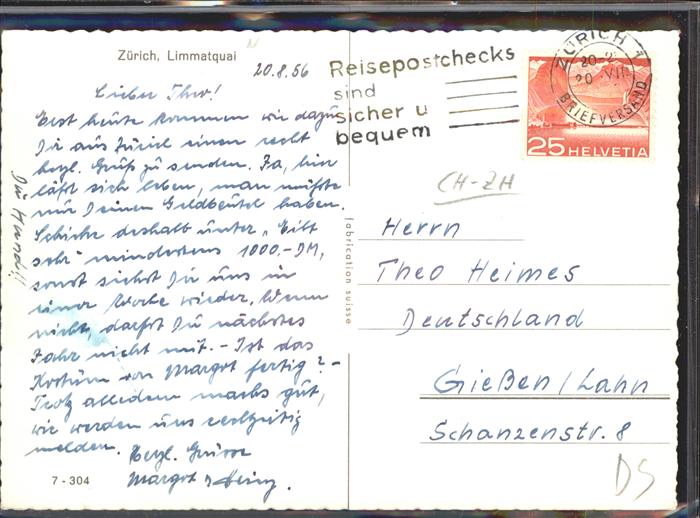 Zürich, Limmatquai
20.8.56
Lieber Theo!
Erst heute kommen wir dazu
Dir aus Zürich einen recht
herzl. Gruß zu senden. Ja, hier
läßt sich leben, man müßte
nur Deinen Geldbeutel haben.
Schicke deshalb unter „Eilt
sehr" mindestens 1000,- DM,
sonst siehst Du uns in
einer Woche wieder. Wenn
nicht, darfst Du nächstes
Jahr nicht mit. - Ist das
Kostüm von Margot fertig? -
Trotz alledem machs gut,
wir werden uns rechtzeitig
melden.
Herzl. Grüsse
Margot u. Heinz.
7 - 304
fabrication suisse
Reisepostchecks
sind
sicher u
bequem
ZÜRICH 1
20-2
20. VIII
BRIEFVERSAND
25 HELVETIA
CH-ZH
Herrn
Theo Heimes
Deutschland
Gießen/Lahn
Schanzenstr. 8
DS